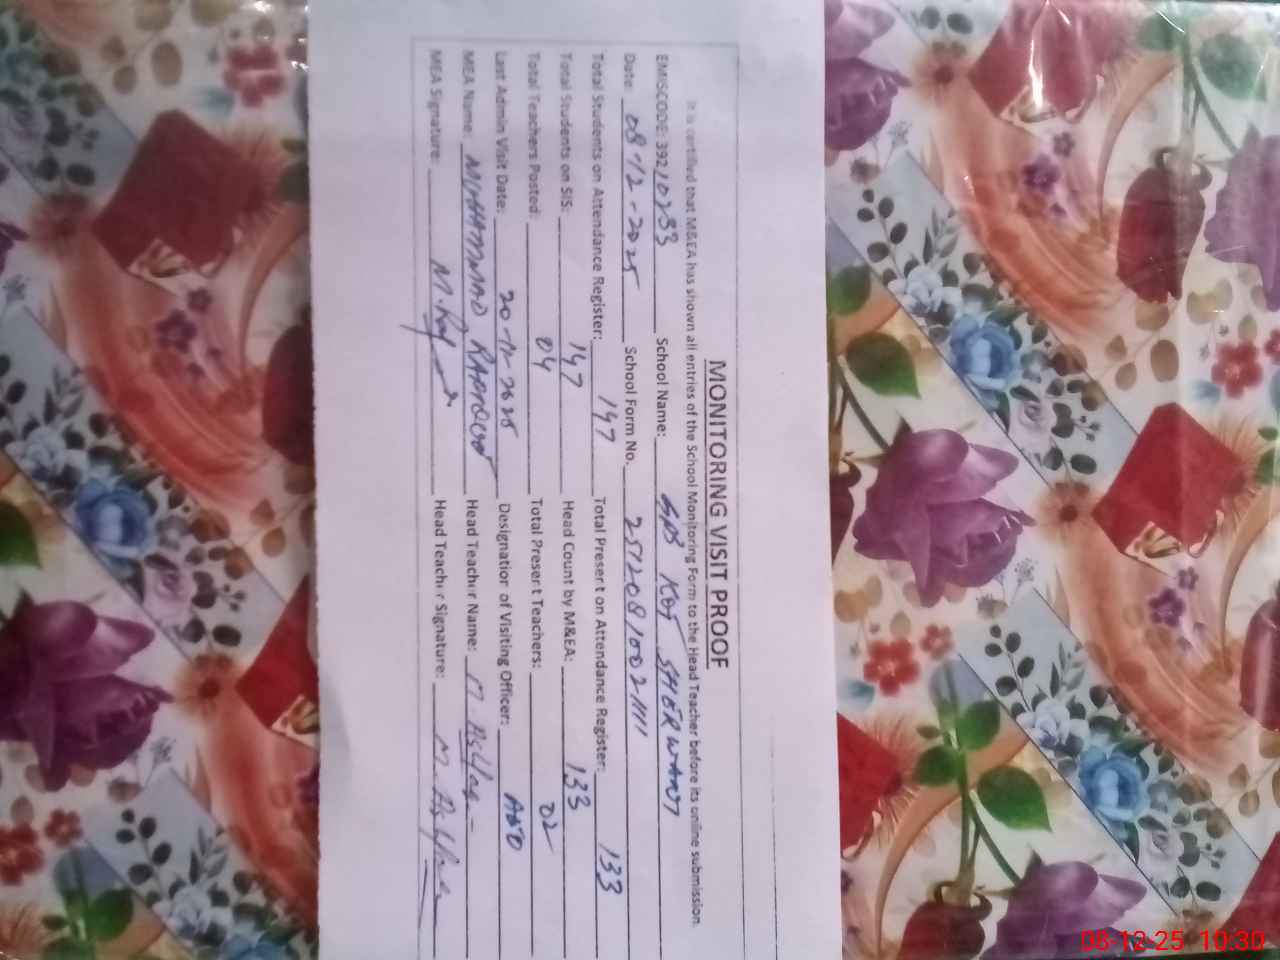 MONITORING VISIT PROOF
It is certified that M&EA has shown all entries of the School Monitoring Form to the Head Teacher before its online submission.
EMISCODE: 39210233 School Name: GPS KOT SHERWANI
Date 08-12-2025 School Form No. 2512081002111
Total Students on Attendance Register: 147 Total Present on Attendance Register: 133
Total Students on SIS: 147 Head Count by M&EA: 133
Total Teachers Posted: 04 Total Present Teachers: 02
Last Admin Visit Date: 20-11-2025 Designation of Visiting Officer: AEO
MEA Name: MUHAMMAD Head Teacher Name: M. Ashfaq
MEA Signature: Head Teacher Signature: M. Ashfaq
08-12-25 10:30